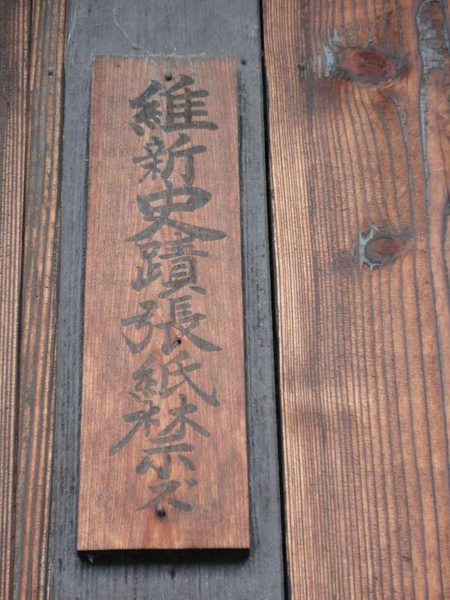 維新史蹟張紙禁ズ